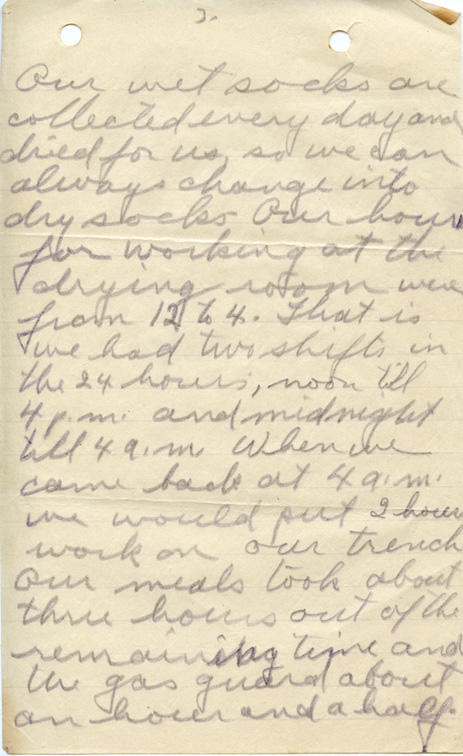 3.
Our wet socks are
collected every day and
dried for us, so we can
always change into
dry socks. Our hours
for working at the
drying room were
from 12 to 4. That is
we had two shifts in
the 24 hours, noon till
4 p.m. and midnight
till 4 a.m. When we
came back at 4 a.m.
we would put 2 hours
work on our trench
Our meals took about
three hours out of the
remaining time and
the gas guard about
an hour and a half.